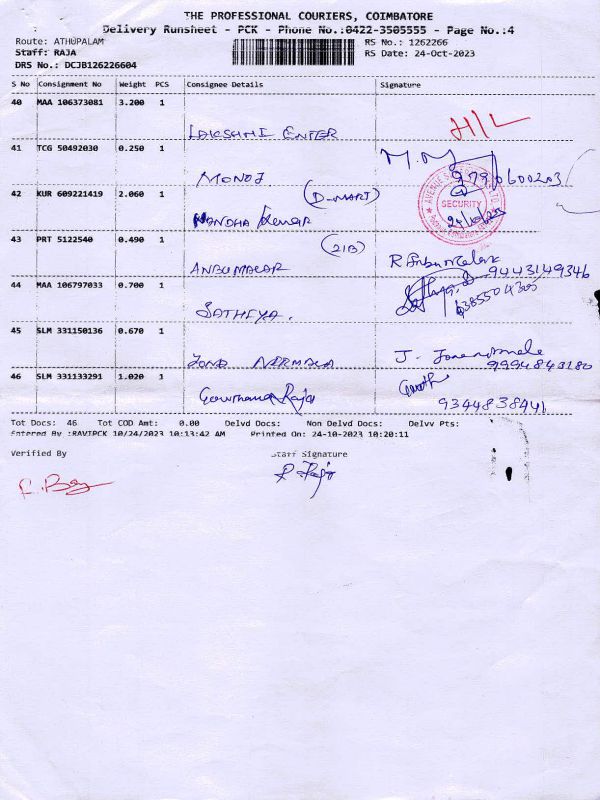 THE PROFESSIONAL COURIERS, COIMBATORE
Delivery Runsheet - PCK - Phone No.:0422-3505555 - Page No.:4
Route: ATHUPALAM RS No.: 1262266
Staff: RAJA RS Date: 24-Oct-2023
DRS No.: DCJB126226604
S No Consignment No Weight PCS Consignee Details Signature
40 MAA 106373081 3.200 1
LAKSHMI ENTER H/L
41 TCG 50492030 0.250 1
MONOJ M.M
42 KUR 609221419 2.060 1 (D-MART)
Nandha Kumar SECURITY
43 PRT 5122540 0.490 1 (21B)
ANBUMALAR 9443149346
44 MAA 106797033 0.700 1
SATHIYA. 
45 SLM 331150136 0.670 1
JONA NIRMALA J. 9994843180
46 SLM 331133291 1.020 1
Gowthama Raja 9344838441
Tot Docs: 46 Tot COD Amt: 0.00 Delvd Docs: Non Delvd Docs: Delvv Pts:
Entered By :RAVIPCK 10/24/2023 10:13:42 AM Printed On: 24-10-2023 10:20:11
Verified By Staff Signature
R Raja